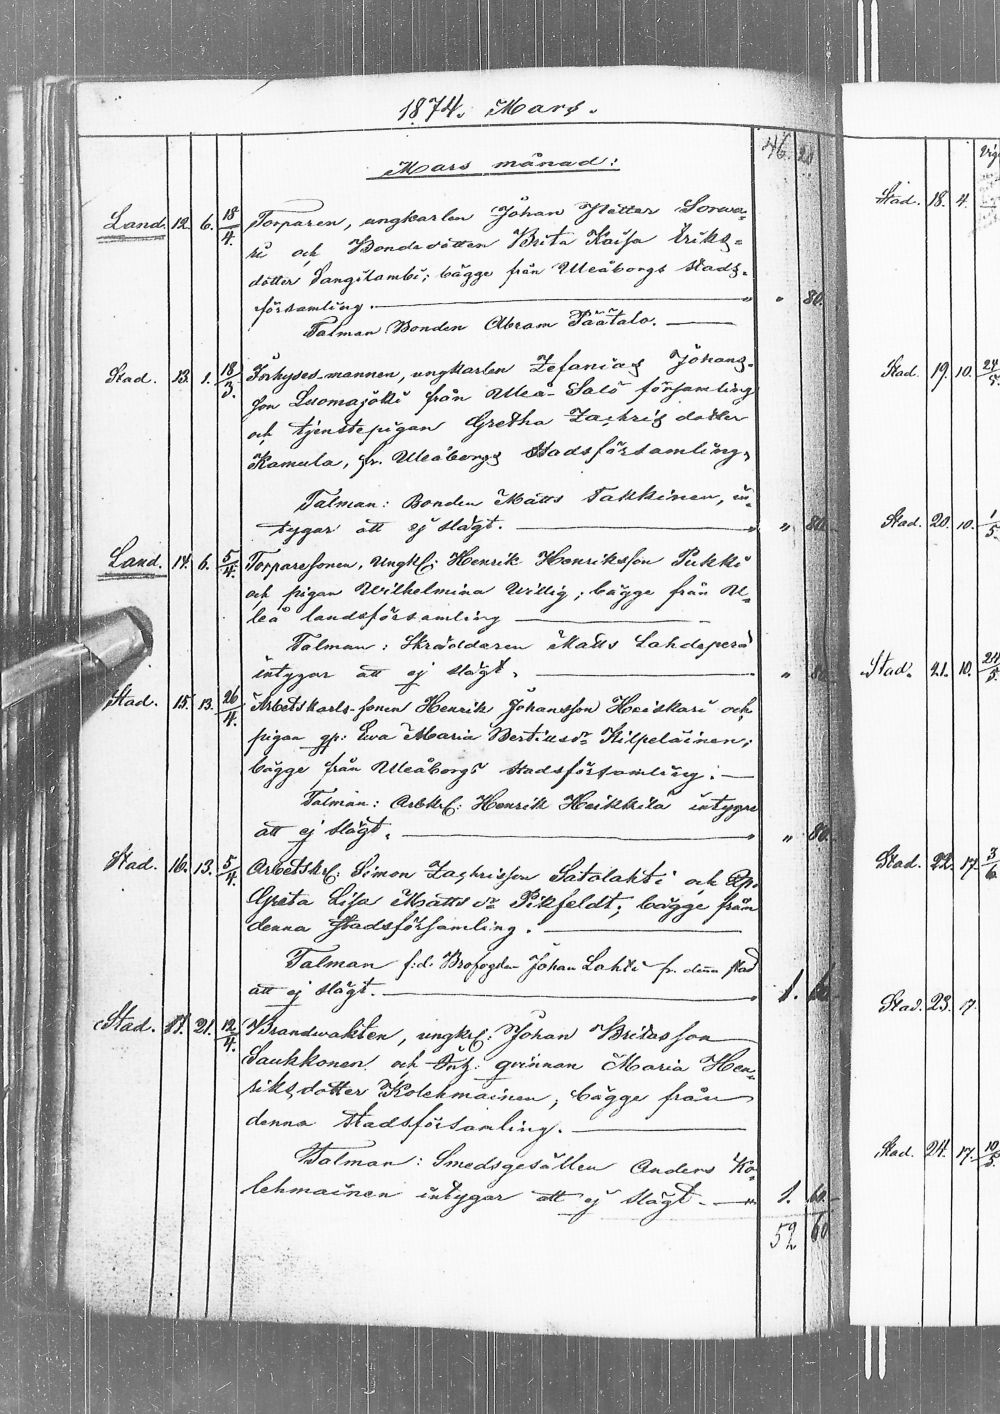 1874. Mars.
46. 20
Mars månad:
Land. 12. 6. 18/4. Torparen, ungkarlen Johan Petter Sorwa-
ri och Bondedottren Brita Kaisa Eriks-
dotter Sangilambi; bägge från Uleåborgs stads-
församling. " " 80.
Talman Bonden Abram Päätalo.
Stad. 13. 1. 18/3. Förhyses-mannen, ungkarlen Zefanias Johans-
son Luomajoki från Uleå-Salo församling
och tjenstepigan Gretha Zachris dotter
Kamula, fr. Uleåborgs Stadsförsamling,
Talman: Bonden Matts Takkinen, in-
tygar att ej slägt. " " 80.
Land. 14. 6. 5/4. Torparesonen, Ungkl: Henrik Henriksson Pukki
och pigan Wilhelmina Willig; bägge från U-
leå landsförsamling
Talman: Skräddaren Matts Lahdeperä
intygar att ej slägt. " 80.
Stad. 15. 13. 26/4. Arbetskarls-sonen Henrik Johansson Heiskari och
pigan gp: Ewa Maria Bertilsdr Kilpeläinen;
bägge från Uleåborgs stadsförsamling.
Talman: Arbkrl: Henrik Heikkilä intygar
att ej slägt. " " 80.
Stad. 16. 13. 5/4. Arbetskrl: Simon Zachrisson Satolahti och Qp.
Greta Lisa Matts dr Pikfeldt; bägge från
denna stadsförsamling.
Talman f:d. Brofogden Johan Lahti fr. denna stad
att ej slägt. 1. 60.
Stad. 17. 21. 12/4. Brandwakten, ungkrl: Johan Britasson
Saukkonen och Enk: qvinnan Maria Hen-
riksdotter Kolehmainen; bägge från
denna stadsförsamling.
Talman: Smedsgesällen Anders Ko-
lehmainen intygar att ej slägt. 1. 60.
52 60
Stad. 18. 4.
Stad. 19. 10. 24/5.
Stad. 20. 10. 1/5.
Stad. 21. 10. 24/5.
Stad. 22. 17. 3/6.
Stad. 23. 17.
Stad. 24. 17. 10/5.